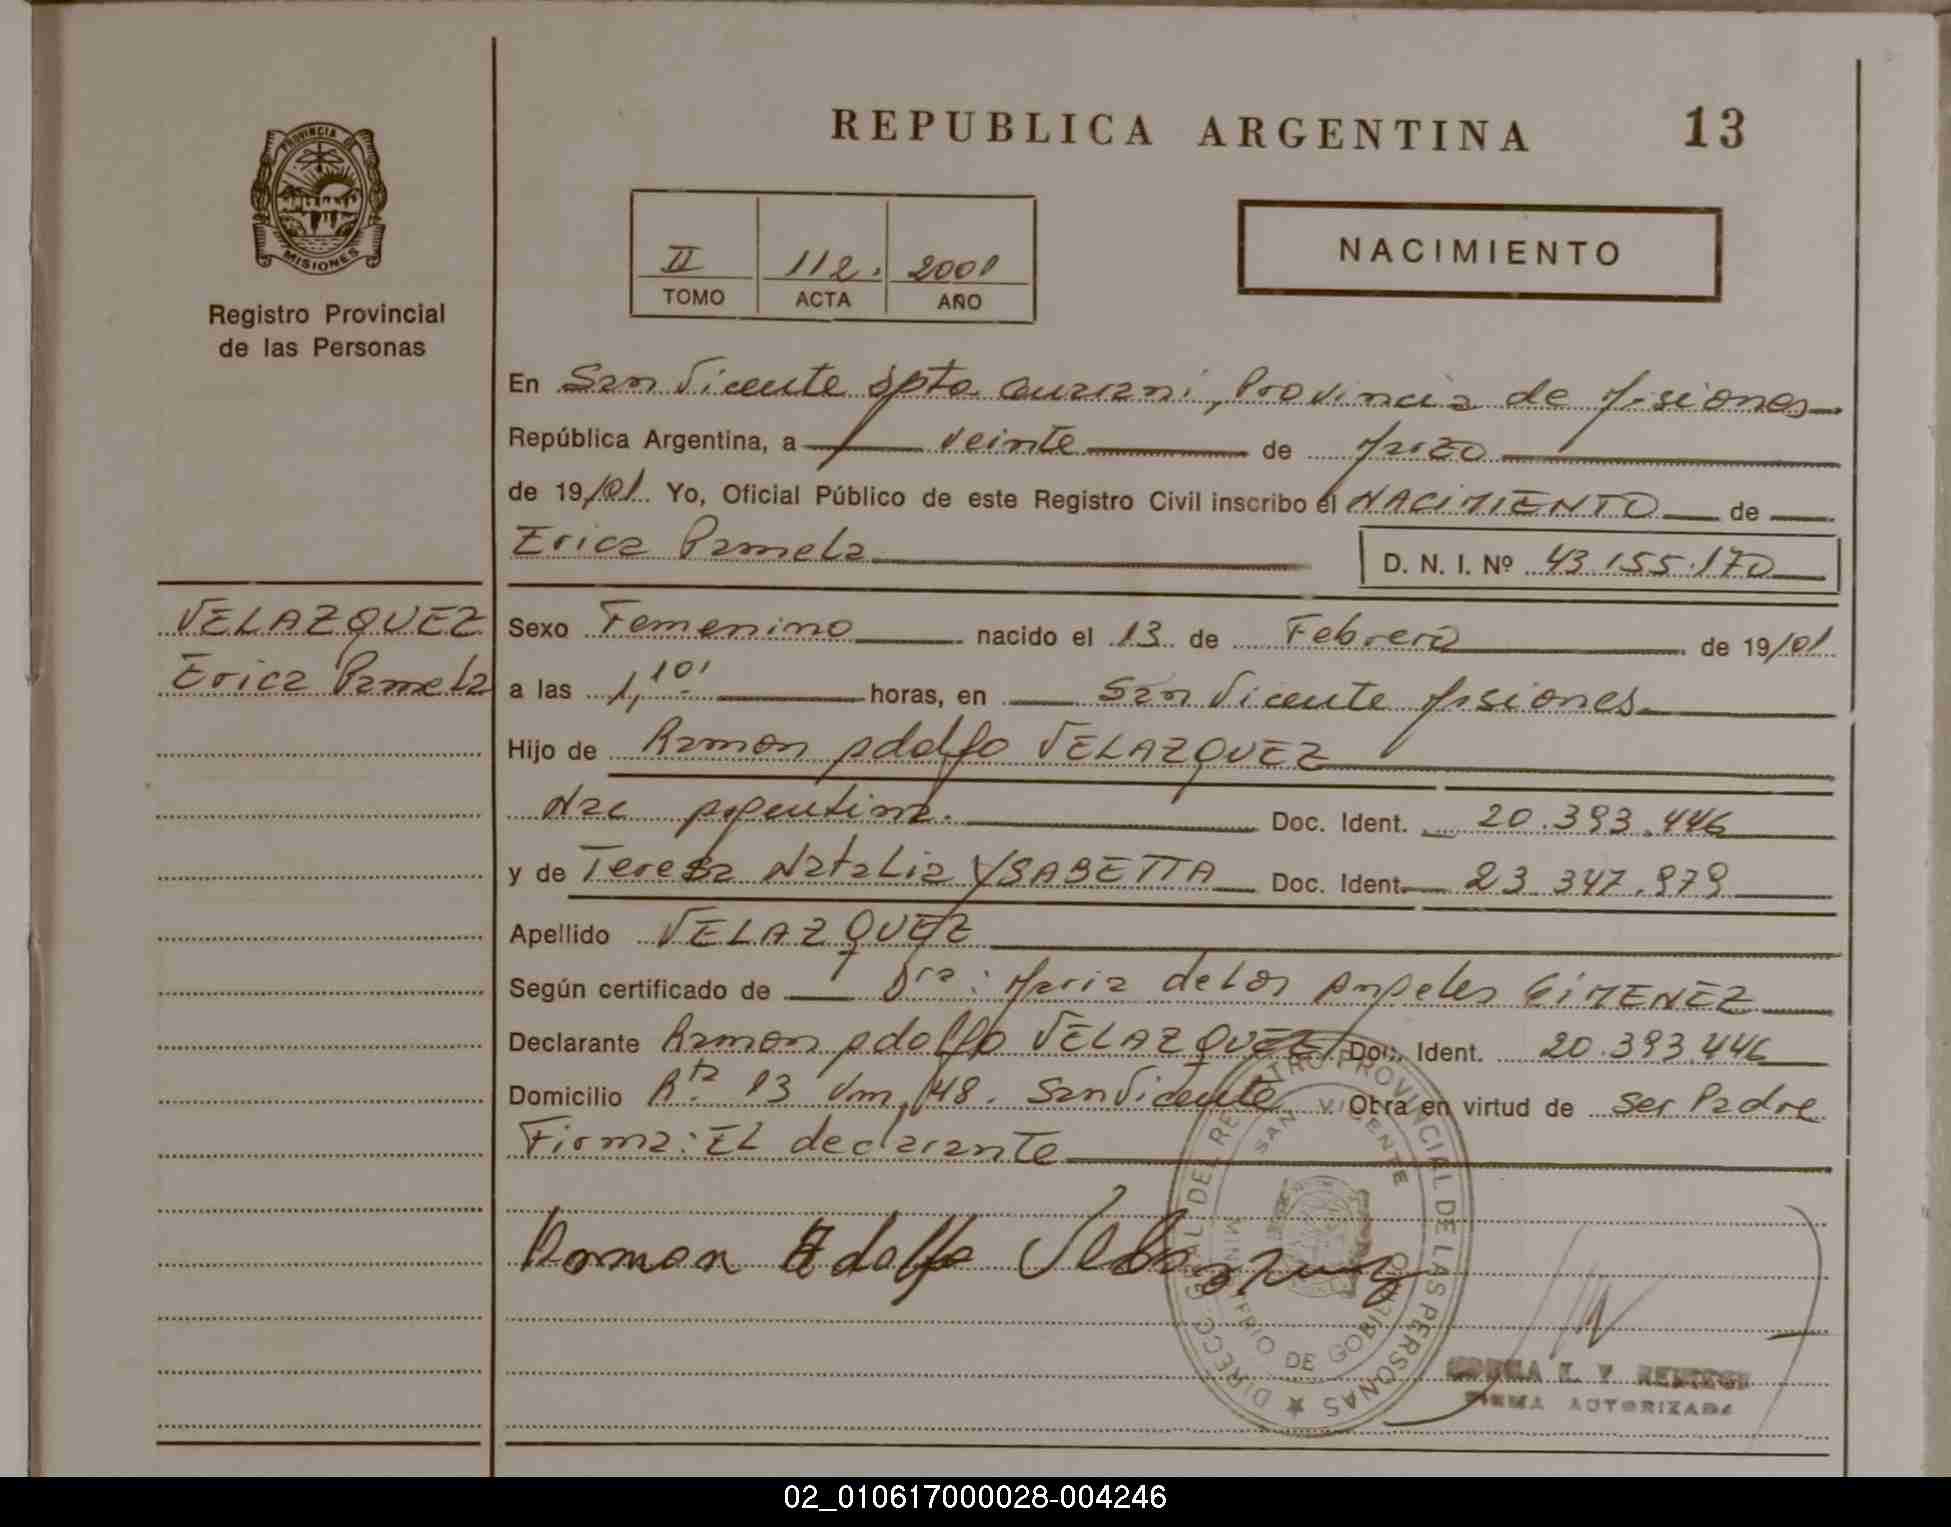 REPUBLICA ARGENTINA 13
PROVINCIA
MISIONES
Registro Provincial
de las Personas
II 112. 2001
TOMO ACTA AÑO
NACIMIENTO
En San Vicente Dpto Guarani, Provincia de Misiones
República Argentina, a veinte de Marzo
de 19/01. Yo, Oficial Público de este Registro Civil inscribo el NACIMIENTO de
Erica Pamela
D. N. I. Nº 43.155.170
VELAZQUEZ
Erica Pamela
Sexo Femenino nacido el 13 de Febrero de 19/01
a las 1,10' horas, en San Vicente Misiones
Hijo de Ramon Adolfo VELAZQUEZ
Nac Argentina. Doc. Ident. 20.393.446
y de Teresa Natalia YSABETTA Doc. Ident. 23.347.979
Apellido VELAZQUEZ
Según certificado de Dra: Maria de Los Angeles GIMENEZ
Declarante Ramon Adolfo VELAZQUEZ Doc. Ident. 20.393.446
Domicilio Rta. 13 Km, 48. San Vicente Obra en virtud de ser Padre
Firma: EL declarante
Ramon Adolfo Velazquez
DIRECC. GRAL. DEL REGISTRO PROVINCIAL DE LAS PERSONAS
SAN VICENTE
MINISTERIO DE GOBIERNO
FIRMA AUTORIZADA
02_010617000028-004246